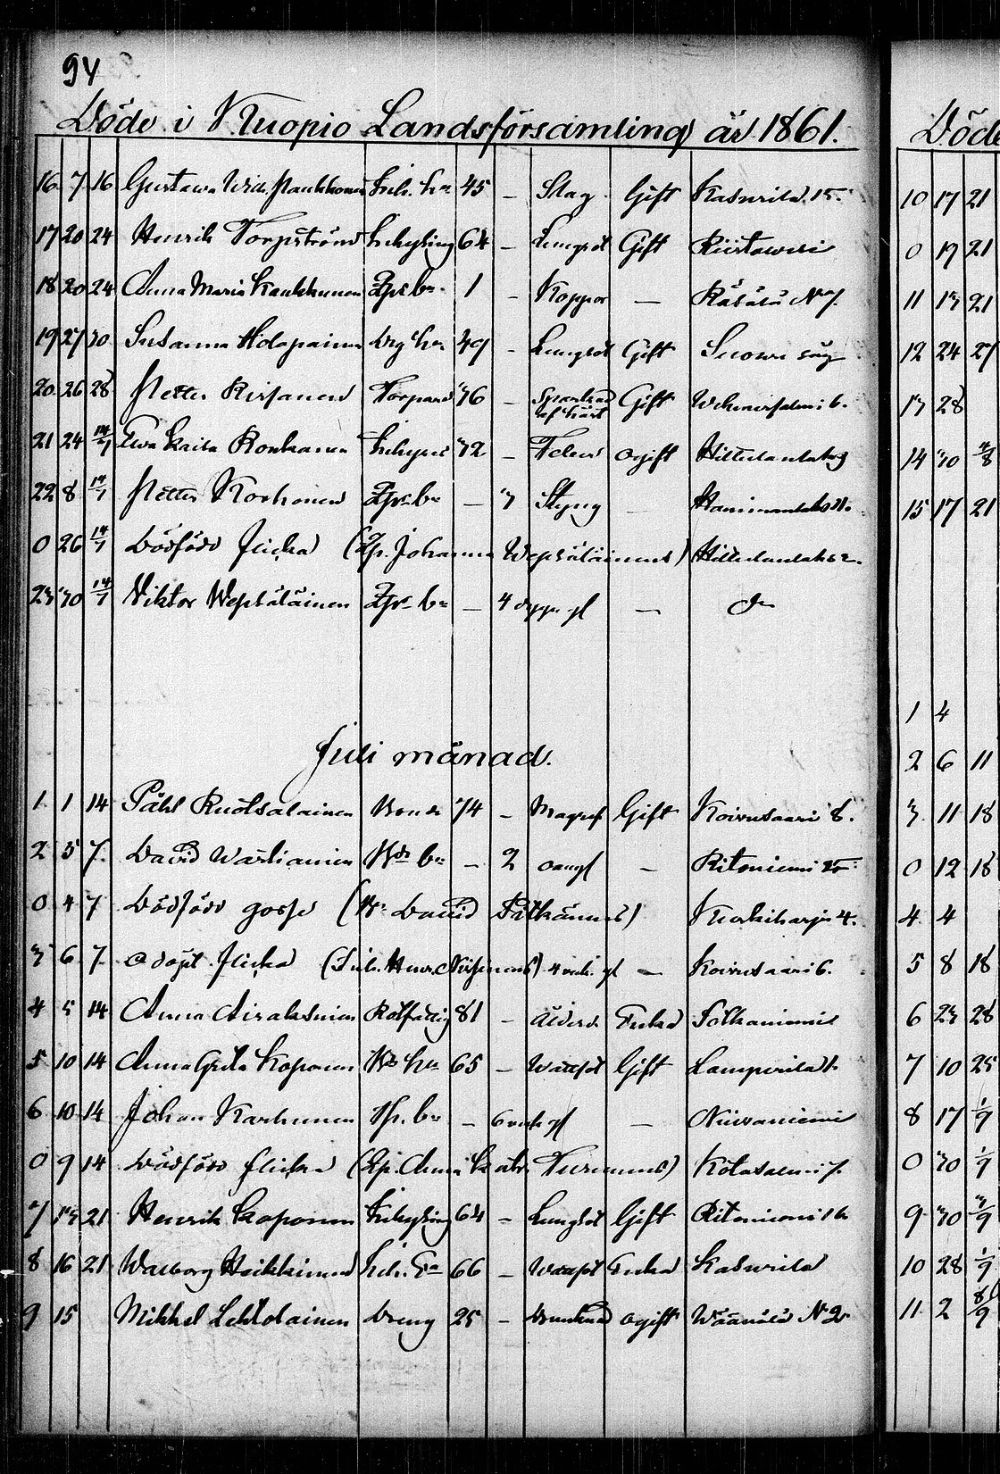 94
Döde i Kuopio Landsförsamling år 1861.
16 7 16 Gustava Wilh. Inh. hu 45 - Slag Gift Kasurila 15
17 20 24 Henrik Torpström Inhysing 64 - Lungsot Gift
18 20 24 Anna Maria Kaukkunen bn 1 - Koppor — Räsälä N 7.
19 27 30 Susanna Holopainen Drg hu 49 - Lungsot Gift
20 26 28 Petter Torpare 76 - Sparkad af häst Gift 6.
21 24 14/7 Ewa Kaisa Ronkanen Inhyses 72 - Feber ogift
22 8 14/7 Petter Korhonen bn — 3 Styng
0 26 14/7 Dödfödd flicka (Pig. Johanna Wepsäläinens)
23 30 14/7 Viktor Wepsäläinen bn — 4 dygn gl — do
Juli månad.
1 1 14 Påhl Ruotsalainen Bonde 74 - Magref Gift Koivusaari 8.
2 5 7 David Wartiainen bn — 2 oangf — Ritoniemi 25
0 4 7 Dödfödd gosse (Bd. David Pitkänens) Kurkiharju 4.
3 6 7 odöpt flicka (Inh. Henr. Nissinens) 4 veck. gl — Koivusaari 6.
4 5 14 Anna Airaksinen Rotfattig 81 - Ålderd. Enka
5 10 14 Anna Greta Koponen hu 65 - Wattsot Gift Lamperila 1.
6 10 14 Johan Karhunen bn — 6 veck gl — Niuvaniemi
0 9 14 Dödfödd flicka (Pig. Anna Katr. Turunens) Kotasalmi 7.
7 13 21 Henrik Koponen Inhysing 64 - Lungsot Gift Ritoniemi 16
8 16 21 Walborg Heikkinen Inh. E:a 66 - Wattsot Enka Kasurila
9 15 Mikkel Lehtolainen Dreng 25 - Drunknad ogift Wäänälä N 2
Död
10 17 21
0 19 21
11 13 21
12 24 27
13 28
14 30 4/8
15 17 21
1 4
2 6 11
3 11 18
0 12 18
4 4
5 8 18
6 23 28
7 10 25
8 17 1/9
0 30 1/9
9 30 3/9
10 28 1/9
11 2 8/9